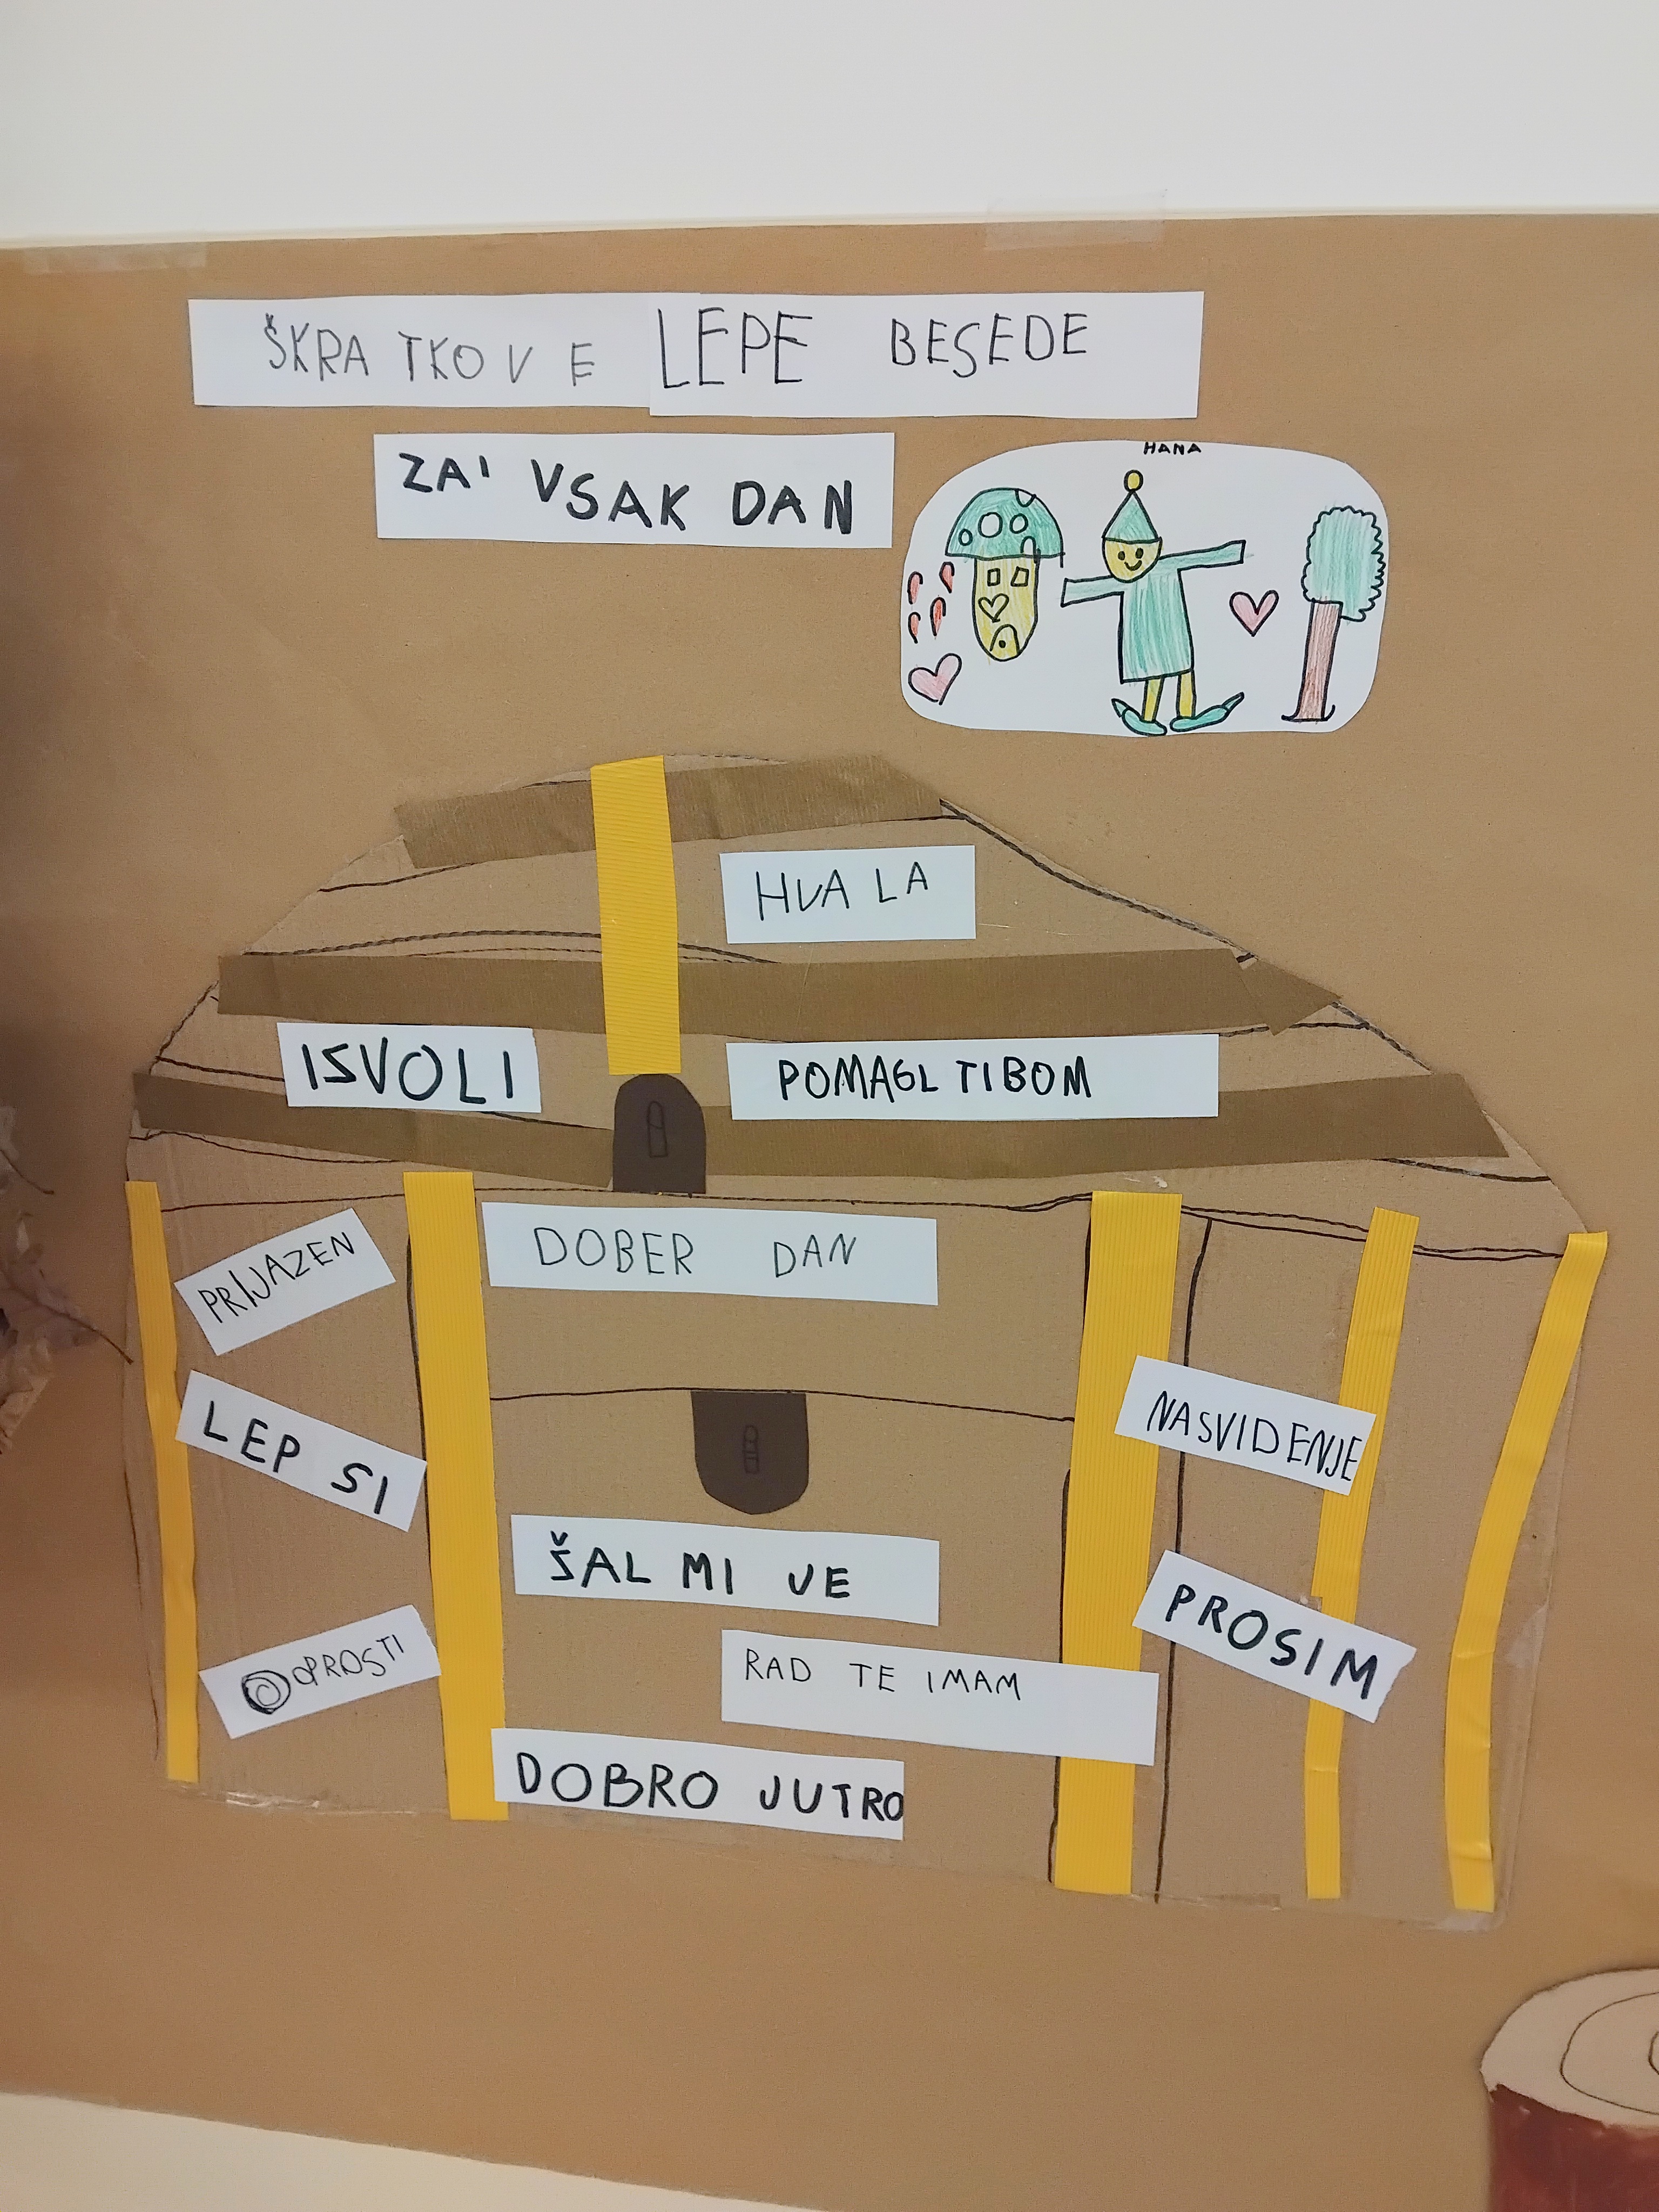 ŠKRATKOVE LEPE BESEDE
ZA' VSAK DAN
HANA
HVALA
ISVOLI
POMAGL TIBOM
PRIJAZEN
DOBER DAN
LEP SI
NASVIDENJE
ŠAL MI JE
PROSIM
OPROSTI
RAD TE IMAM
DOBRO JUTRO